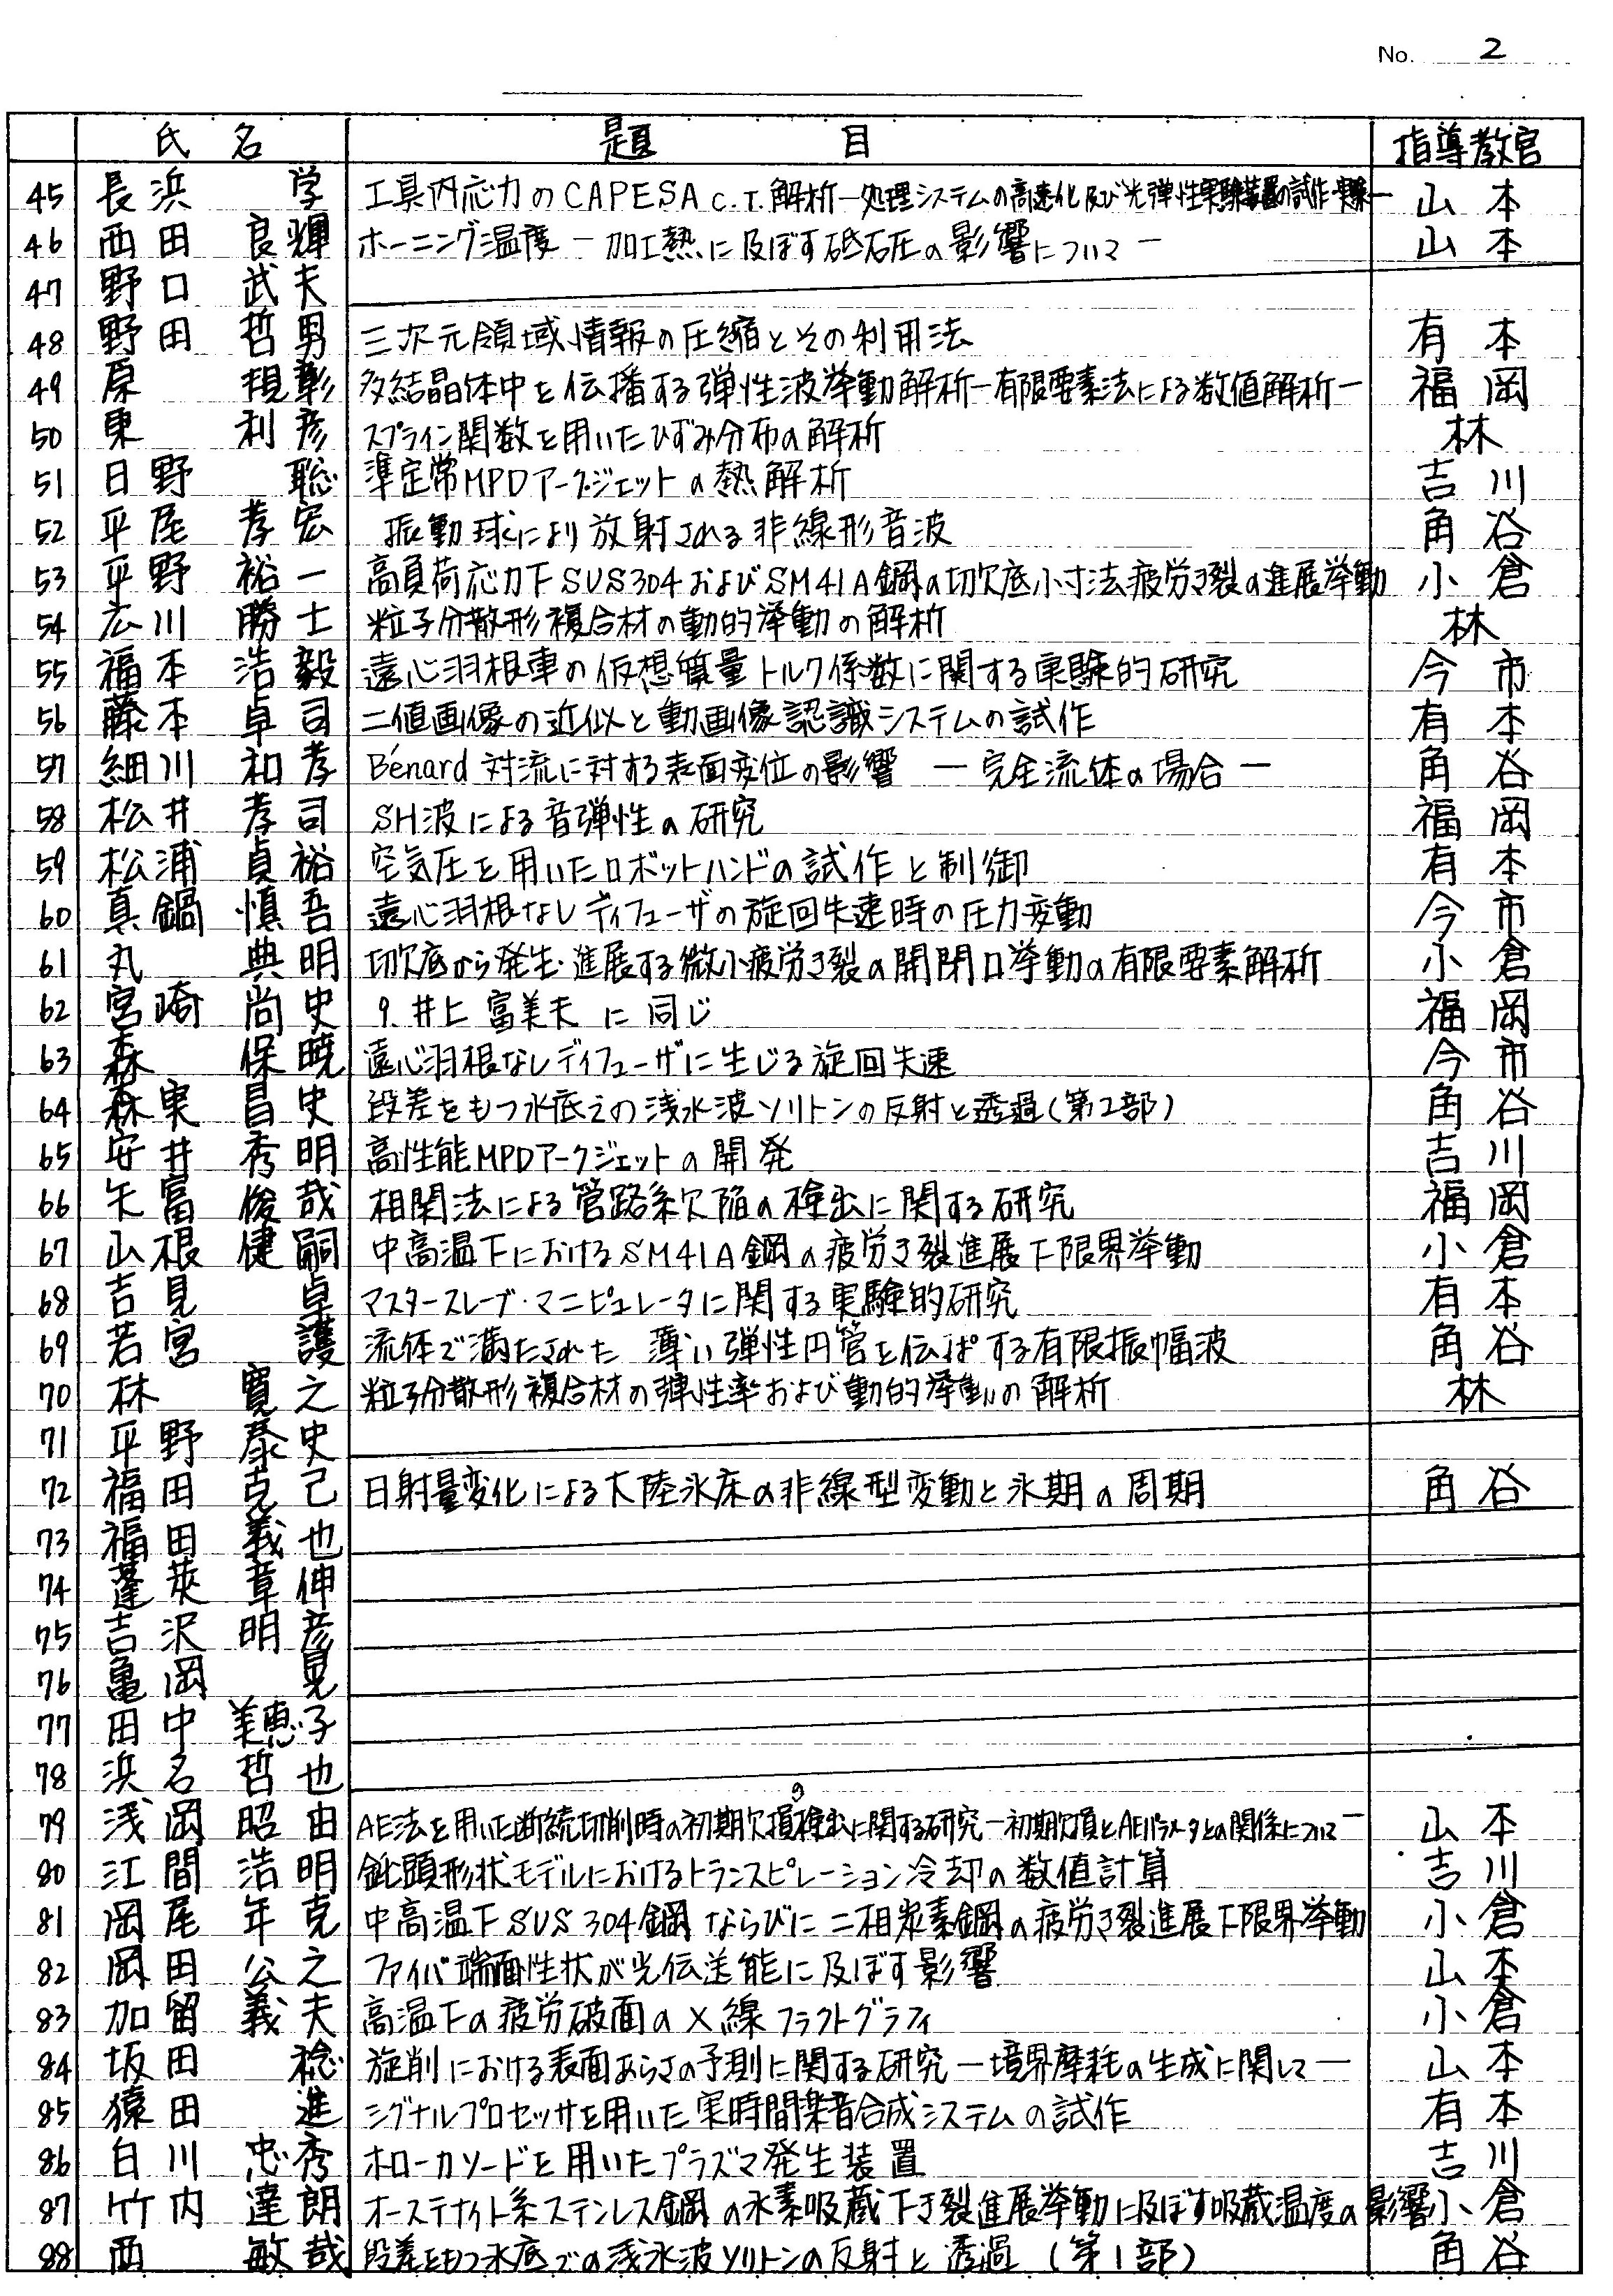 No. 2
氏名 題目 指導教官
45 長浜 学 工具内応力のCAPESA C.T.解析―処理システムの高速化及び光弾性実験装置の試作・実験― 山本
46 西田 良輝 ホーニング温度 ― 加工熱に及ぼす砥石圧の影響について ― 山本
47 野口 武夫
48 野田 哲男 三次元領域情報の圧縮とその利用法 有本
49 原 規彰 多結晶体中を伝播する弾性波挙動解析―有限要素法による数値解析― 福岡
50 東 利彦 スプライン関数を用いたひずみ分布の解析 林
51 日野 聡 準定常MPDアークジェットの熱解析 吉川
52 平尾 孝宏 振動球により放射される非線形音波 角谷
53 平野 裕一 高負荷応力下SUS304およびSM41A鋼の切欠底小寸法疲労き裂の進展挙動 小倉
54 広川 勝士 粒子分散形複合材の動的挙動の解析 林
55 福本 浩毅 遠心羽根車の仮想質量トルク係数に関する実験的研究 今市
56 藤本 卓司 二値画像の近似と動画像認識システムの試作 有本
57 細川 和孝 Bénard 対流に対する表面変位の影響 ― 完全流体の場合 ― 角谷
58 松井 孝司 SH波による音弾性の研究 福岡
59 松浦 貞裕 空気圧を用いたロボットハンドの試作と制御 有本
60 真鍋 慎吾 遠心羽根なしディフューザの旋回失速時の圧力変動 今市
61 丸 典明 切欠底から発生・進展する微小疲労き裂の開閉口挙動の有限要素解析 小倉
62 宮崎 尚史 9. 井上 富美夫 に同じ 福岡
63 森 保暁 遠心羽根なしディフューザに生じる旋回失速 今市
64 森実 昌史 段差をもつ水底での浅水波ソリトンの反射と透過(第2部) 角谷
65 安井 秀明 高性能MPDアークジェットの開発 吉川
66 矢富 俊哉 相関法による管路系欠陥の検出に関する研究 福岡
67 山根 健嗣 中高温下におけるSM41A鋼の疲労き裂進展下限界挙動 小倉
68 吉見 卓 マスタースレーブ・マニピュレータに関する実験的研究 有本
69 若宮 護 流体で満たされた 薄い弾性円管を伝ぱする有限振幅波 角谷
70 林 寛之 粒子分散形複合材の弾性率および動的挙動の解析 林
71 平野 泰史
72 福田 克己 日射量変化による大陸氷床の非線型変動と氷期の周期 角谷
73 福田 義也
74 蓬莱 章伸
75 吉沢 明彦
76 亀岡 晃
77 田中 美恵子
78 浜名 哲也
79 浅岡 昭由 AE法を用いた断続切削時の初期欠損の検出に関する研究―初期欠損とAEパラメータとの関係について― 山本
80 江間 浩明 鈍頭形状モデルにおけるトランスピレーション冷却の数値計算 吉川
81 岡尾 年克 中高温下SUS304鋼ならびに二相炭素鋼の疲労き裂進展下限界挙動 小倉
82 岡田 公之 ファイバ端面性状が光伝送能に及ぼす影響 山本
83 加留 義夫 高温下の疲労破面のX線フラクトグラフィ 小倉
84 坂田 稔 旋削における表面あらさの予測に関する研究―境界摩耗の生成に関して― 山本
85 猿田 進 シグナルプロセッサを用いた実時間楽音合成システムの試作 有本
86 白川 忠秀 ホローカソードを用いたプラズマ発生装置 吉川
87 竹内 達朗 オーステナイト系ステンレス鋼の水素吸蔵下き裂進展挙動に及ぼす吸蔵温度の影響 小倉
88 西 敏哉 段差をもつ水底での浅水波ソリトンの反射と透過(第1部) 角谷